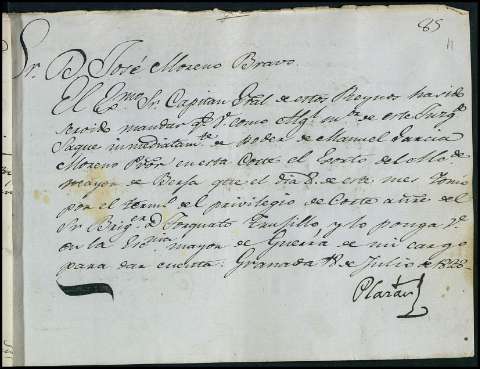 85
Sr. D. José Moreno Bravo.
El Exmo. Sr. Capitan Gral. de estos Reynos ha sido
servido mandar qe. V. como Algl. mr. de este Juzgo.
saque inmediatamte. de poder de Manuel Garcia
Moreno Procr. en esta Corte el del Alcde.
mayor de Berja que el dia 8 de este mes tomó
por el term. del privilegio de Corte á nre. del
Sr. Brigr. D. Torquato Trujillo, y lo ponga
en la Escnia. mayor de Guerra de mi cargo
para dar cuenta. Granada 18 de Julio de 1828.